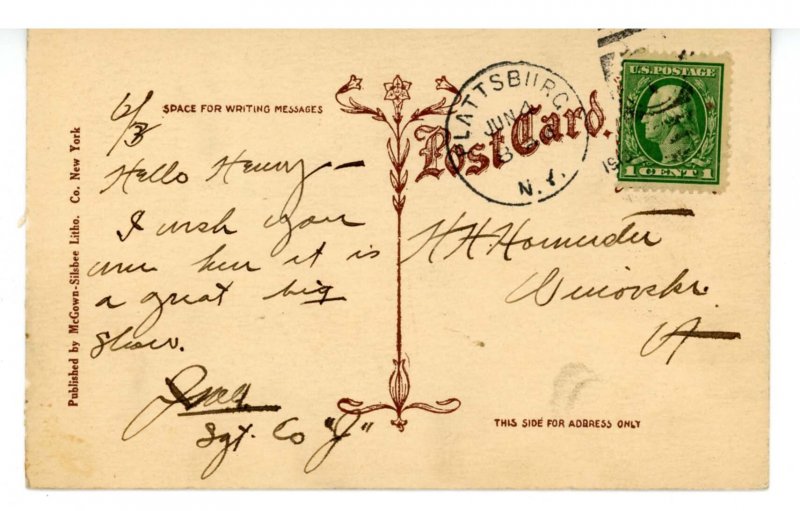 SPACE FOR WRITING MESSAGES
Post Card.
PLATTSBURG
JUN 4
N.Y.
U.S. POSTAGE
1 CENT 1
Published by McGown-Silsbee Litho. Co. New York
6/3
Hello Henry —
I wish you
were here it is
a great big
show.
Sgt. Co "J"
H H
Winooski.
Vt
THIS SIDE FOR ADDRESS ONLY